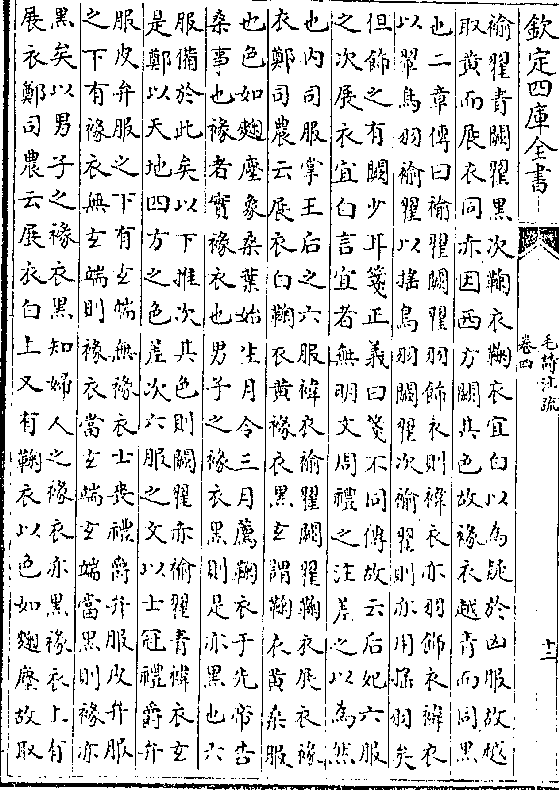 欽定四庫全書
毛詩注疏
卷四
十二
褕翟青闕翟黑次鞠衣鞠衣宜白以為疑於凶服故越
取黄而展衣同赤因西方闕其色故褖衣越青而同黒
也二章傳曰褕翟闕翟羽飾衣則褘衣亦羽飾衣褘衣
以翬鳥羽褕翟以揺鳥羽闕翟次褕翟則亦用揺羽矣
但飾之有闕少耳箋正義曰箋不同傳故云后妃六服
之次展衣宜白言宜者無明文周禮之注差之以為然
也内司服掌王后之六服褘衣褕翟闕翟鞠衣展衣褖
衣鄭司農云展衣白鞠衣黄褖衣黒玄謂鞠衣黄桑服
也色如麴塵象桑葉始生月令三月薦鞠衣于先帝告
桑事也褖者實褖衣也男子之褖衣黒則是亦黒也六
服備於此矣以下推次其色則闕翟赤褕翟青褘衣玄
是鄭以天地四方之色差次六服之文以士冠禮爵弁
服皮弁服之下有玄端無褖衣士喪禮爵弁服皮弁服
之下有褖衣無玄端則褖衣當玄端玄端當黒則褖亦
黒矣以男子之褖衣黒知婦人之褖衣亦黒褖衣上有
展衣鄭司農云展衣白上又有鞠衣以色如麴塵故取